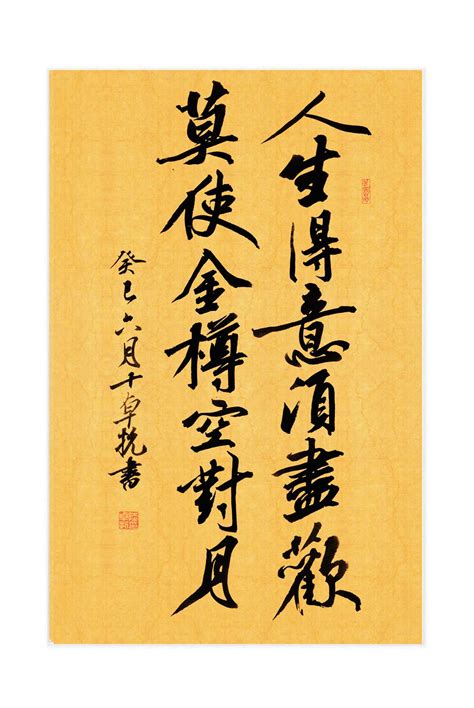 人生得意須盡歡
莫使金樽空對月
癸巳六月十
書